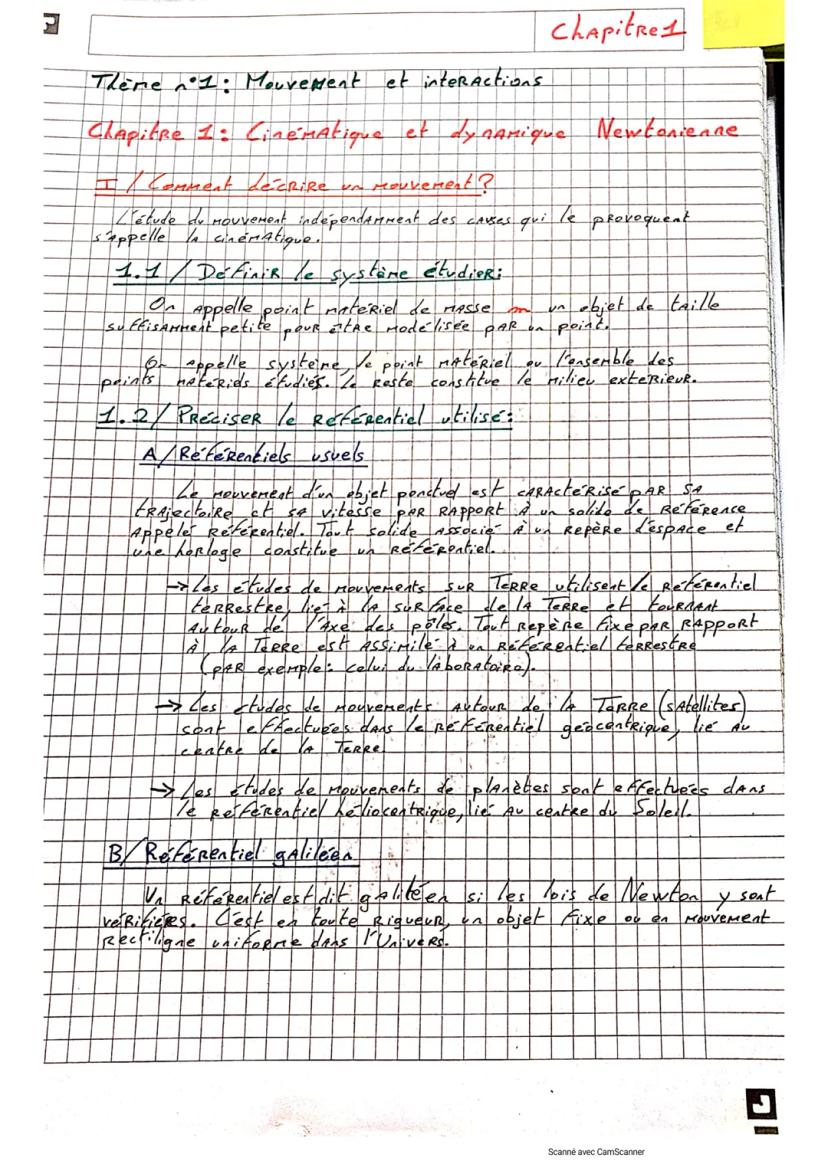 Chapitre 1
Thème n°1 : Mouvement et interactions
Chapitre 1 : Cinématique et dynamique Newtonienne
I / Comment décrire un mouvement ?
L'étude du mouvement indépendamment des causes qui le provoquent
s'appelle la cinématique.
1.1 / Définir le système étudier :
On appelle point matériel de masse m un objet de taille
suffisamment petite pour être modélisée par un point.
On appelle système, le point matériel ou l'ensemble des
points matériels étudiés. Le reste constitue le milieu extérieur.
1.2 / Préciser le référentiel utilisé :
A / Référentiels usuels
Le mouvement d'un objet ponctuel est caractérisé par sa
trajectoire et sa vitesse par rapport à un solide de référence
appelé référentiel. Tout solide associé à un repère d'espace et
une horloge constitue un référentiel.
→ Les études de mouvements sur Terre utilisent le référentiel
terrestre, lié à la surface de la Terre et tournant
autour de l'axe des pôles. Tout repère fixe par rapport
à la Terre est assimilé à un référentiel terrestre
(par exemple : celui du laboratoire).
→ Les études de mouvements autour de la Terre (satellites)
sont effectuées dans le référentiel géocentrique, lié au
centre de la Terre
→ Les études de mouvements de planètes sont effectuées dans
le référentiel héliocentrique, lié au centre du Soleil.
B / Référentiel galiléen
Un référentiel est dit galiléen si les lois de Newton y sont
vérifiées. C'est en toute rigueur, un objet fixe ou en mouvement
rectiligne uniforme dans l'Univers.
Scanné avec CamScanner